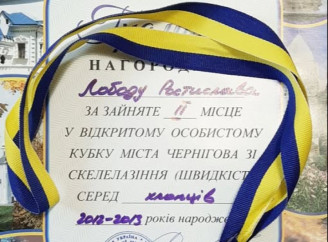 НАГОРОД
Лободу Ростислава
ЗА ЗАЙНЯТЕ II МІСЦЕ
У ВІДКРИТОМУ ОСОБИСТОМУ
КУБКУ МІСТА ЧЕРНІГОВА ЗІ
СКЕЛЕЛАЗІННЯ (ШВИДКІСТ
СЕРЕД хлопців
2012-2013 років народже